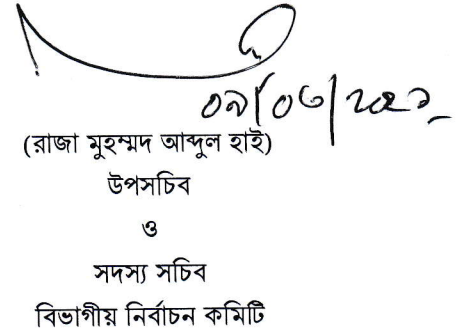 ০৯/০৬/২০২১
(রাজা মুহম্মদ আব্দুল হাই)
উপসচিব
ও
সদস্য সচিব
বিভাগীয় নির্বাচন কমিটি